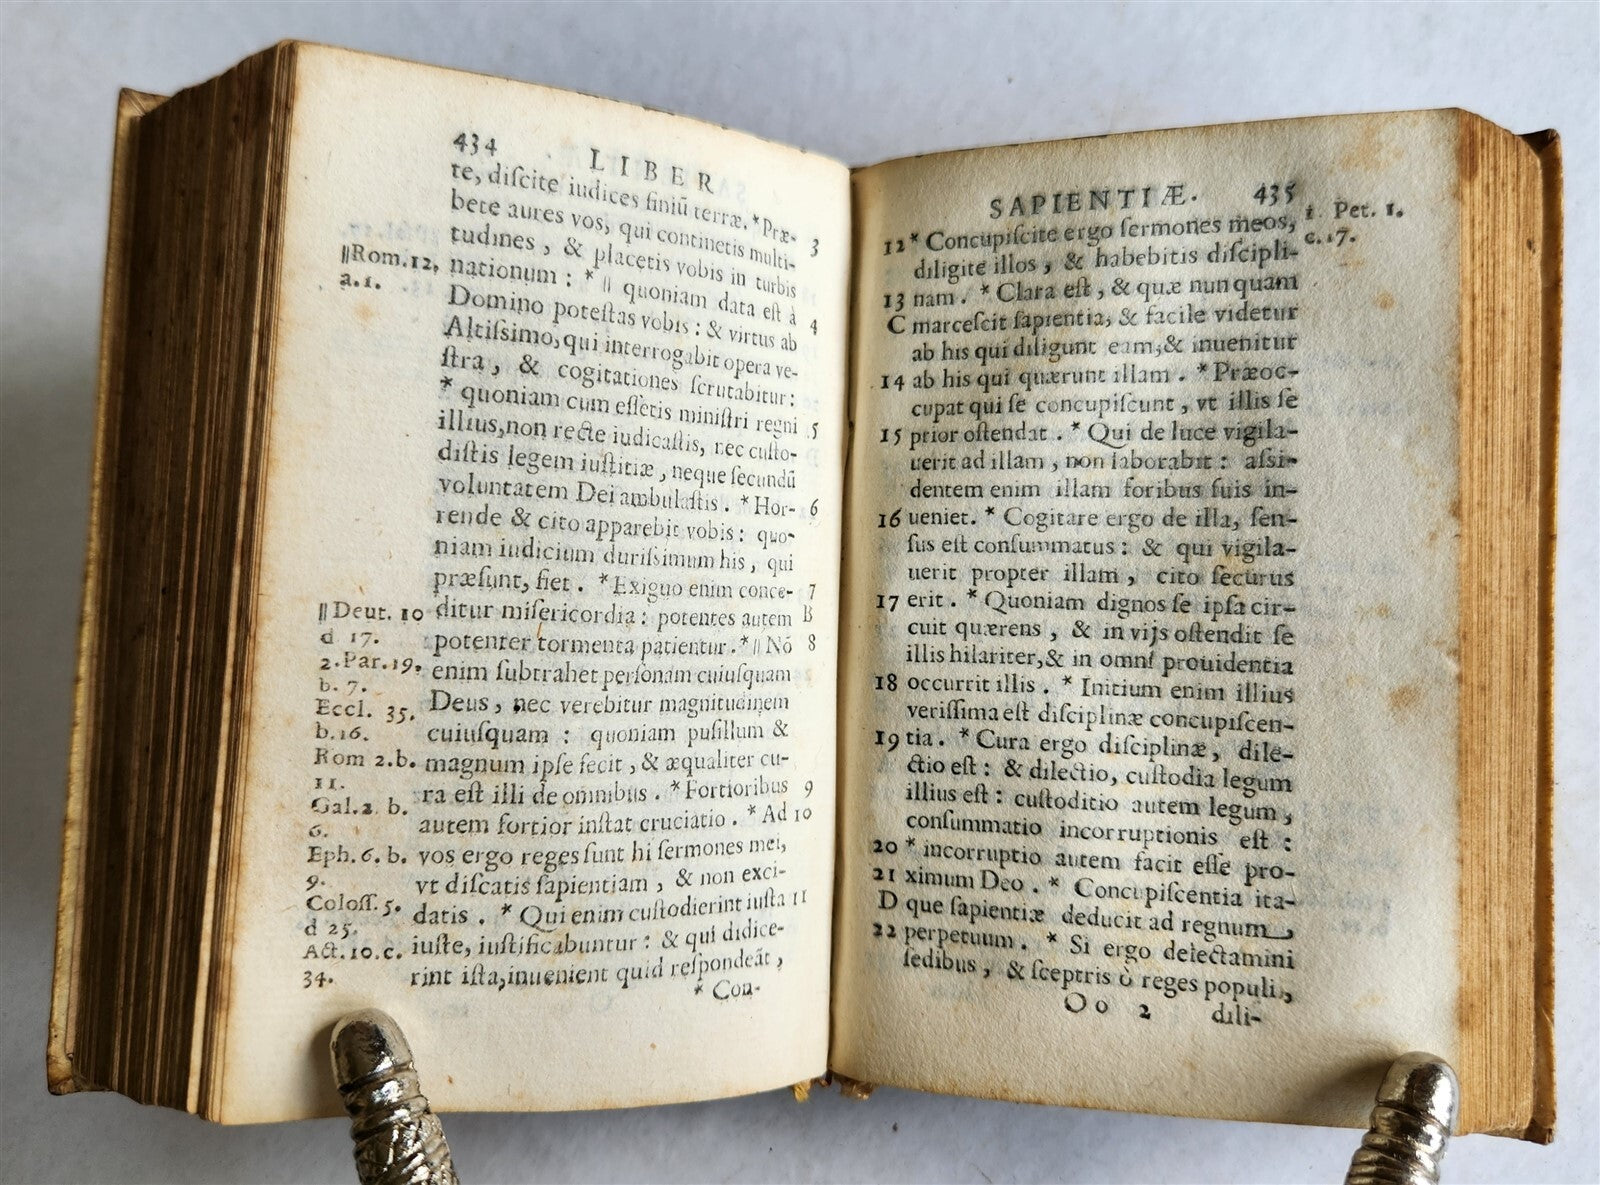 434
LIBER
te, diſcite iudices finiũ terræ. * Præ- 3
bete aures vos, qui continetis multi-
tudines, & placetis vobis in turbis
‖Rom.12, nationum : * ‖ quoniam data eſt à 4
a.1. Domino poteſtas vobis : & virtus ab
Altiſsimo, qui interrogabit opera ve-
ſtra, & cogitationes ſcrutabitur:
* quoniam cum eſſetis miniſtri regni 5
illius, non recte iudicaſtis, nec cuſto-
diſtis legem iuſtitiæ, neque ſecundũ
voluntatem Dei ambulaſtis. * Hor- 6
rende & cito apparebit vobis: quo-
niam iudicium duriſsimum his, qui
præſunt, fiet. * Exiguo enim conce- 7
‖Deut. 10 ditur miſericordia: potentes autem B
d 17. potenter tormenta patientur. * ‖ Nõ 8
2.Par.19, enim ſubtrahet perſonam cuiuſquam
b. 7. Deus, nec verebitur magnitudinem
Eccl. 35. cuiuſquam : quoniam puſillum &
b.16.
Rom 2.b. magnum ipſe fecit, & æqualiter cu-
11. ra eſt illi de omnibus. * Fortioribus 9
Gal.2 b. autem fortior inſtat cruciatio. * Ad 10
6.
Eph. 6. b. vos ergo reges ſunt hi ſermones mei,
9. vt diſcatis ſapientiam, & non exci-
Coloſſ. 5. datis. * Qui enim cuſtodierint iuſta 11
d 25.
Act.10.c. iuſte, iuſtificabuntur: & qui didice-
34. rint iſta, inuenient quid reſpondeãt,
* Con-
SAPIENTIÆ. 435
12 * Concupiſcite ergo ſermones meos, 1 Pet. 1.
diligite illos, & habebitis diſcipli- c. 17.
13 nam. * Clara eſt, & quæ nunquam
C marceſcit ſapientia, & facile videtur
ab his qui diligunt eam, & inuenitur
14 ab his qui quærunt illam. * Præoc-
cupat qui ſe concupiſcunt, vt illis ſe
15 prior oſtendat. * Qui de luce vigila-
uerit ad illam, non laborabit: aſsi-
dentem enim illam foribus ſuis in-
16 ueniet. * Cogitare ergo de illa, ſen-
ſus eſt conſummatus: & qui vigila-
uerit propter illam, cito ſecurus
17 erit. * Quoniam dignos ſe ipſa cir-
cuit quærens, & in vijs oſtendit ſe
illis hilariter, & in omni prouidentia
18 occurrit illis. * Initium enim illius
veriſſima eſt diſciplinæ concupiſcen-
19 tia. * Cura ergo diſciplinæ, dile-
ctio eſt: & dilectio, cuſtodia legum
illius eſt: cuſtoditio autem legum,
conſummatio incorruptionis eſt:
20 * incorruptio autem facit eſſe pro-
21 ximum Deo. * Concupiſcentia ita-
D que ſapientiæ deducit ad regnum
22 perpetuum. * Si ergo delectamini
ſedibus, & ſceptris ò reges populi,
Oo 2 dili-